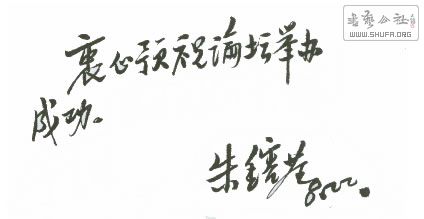 書藝公社
WWW.SHUFA.ORG
衷心预祝论坛举办
成功。
朱镕基